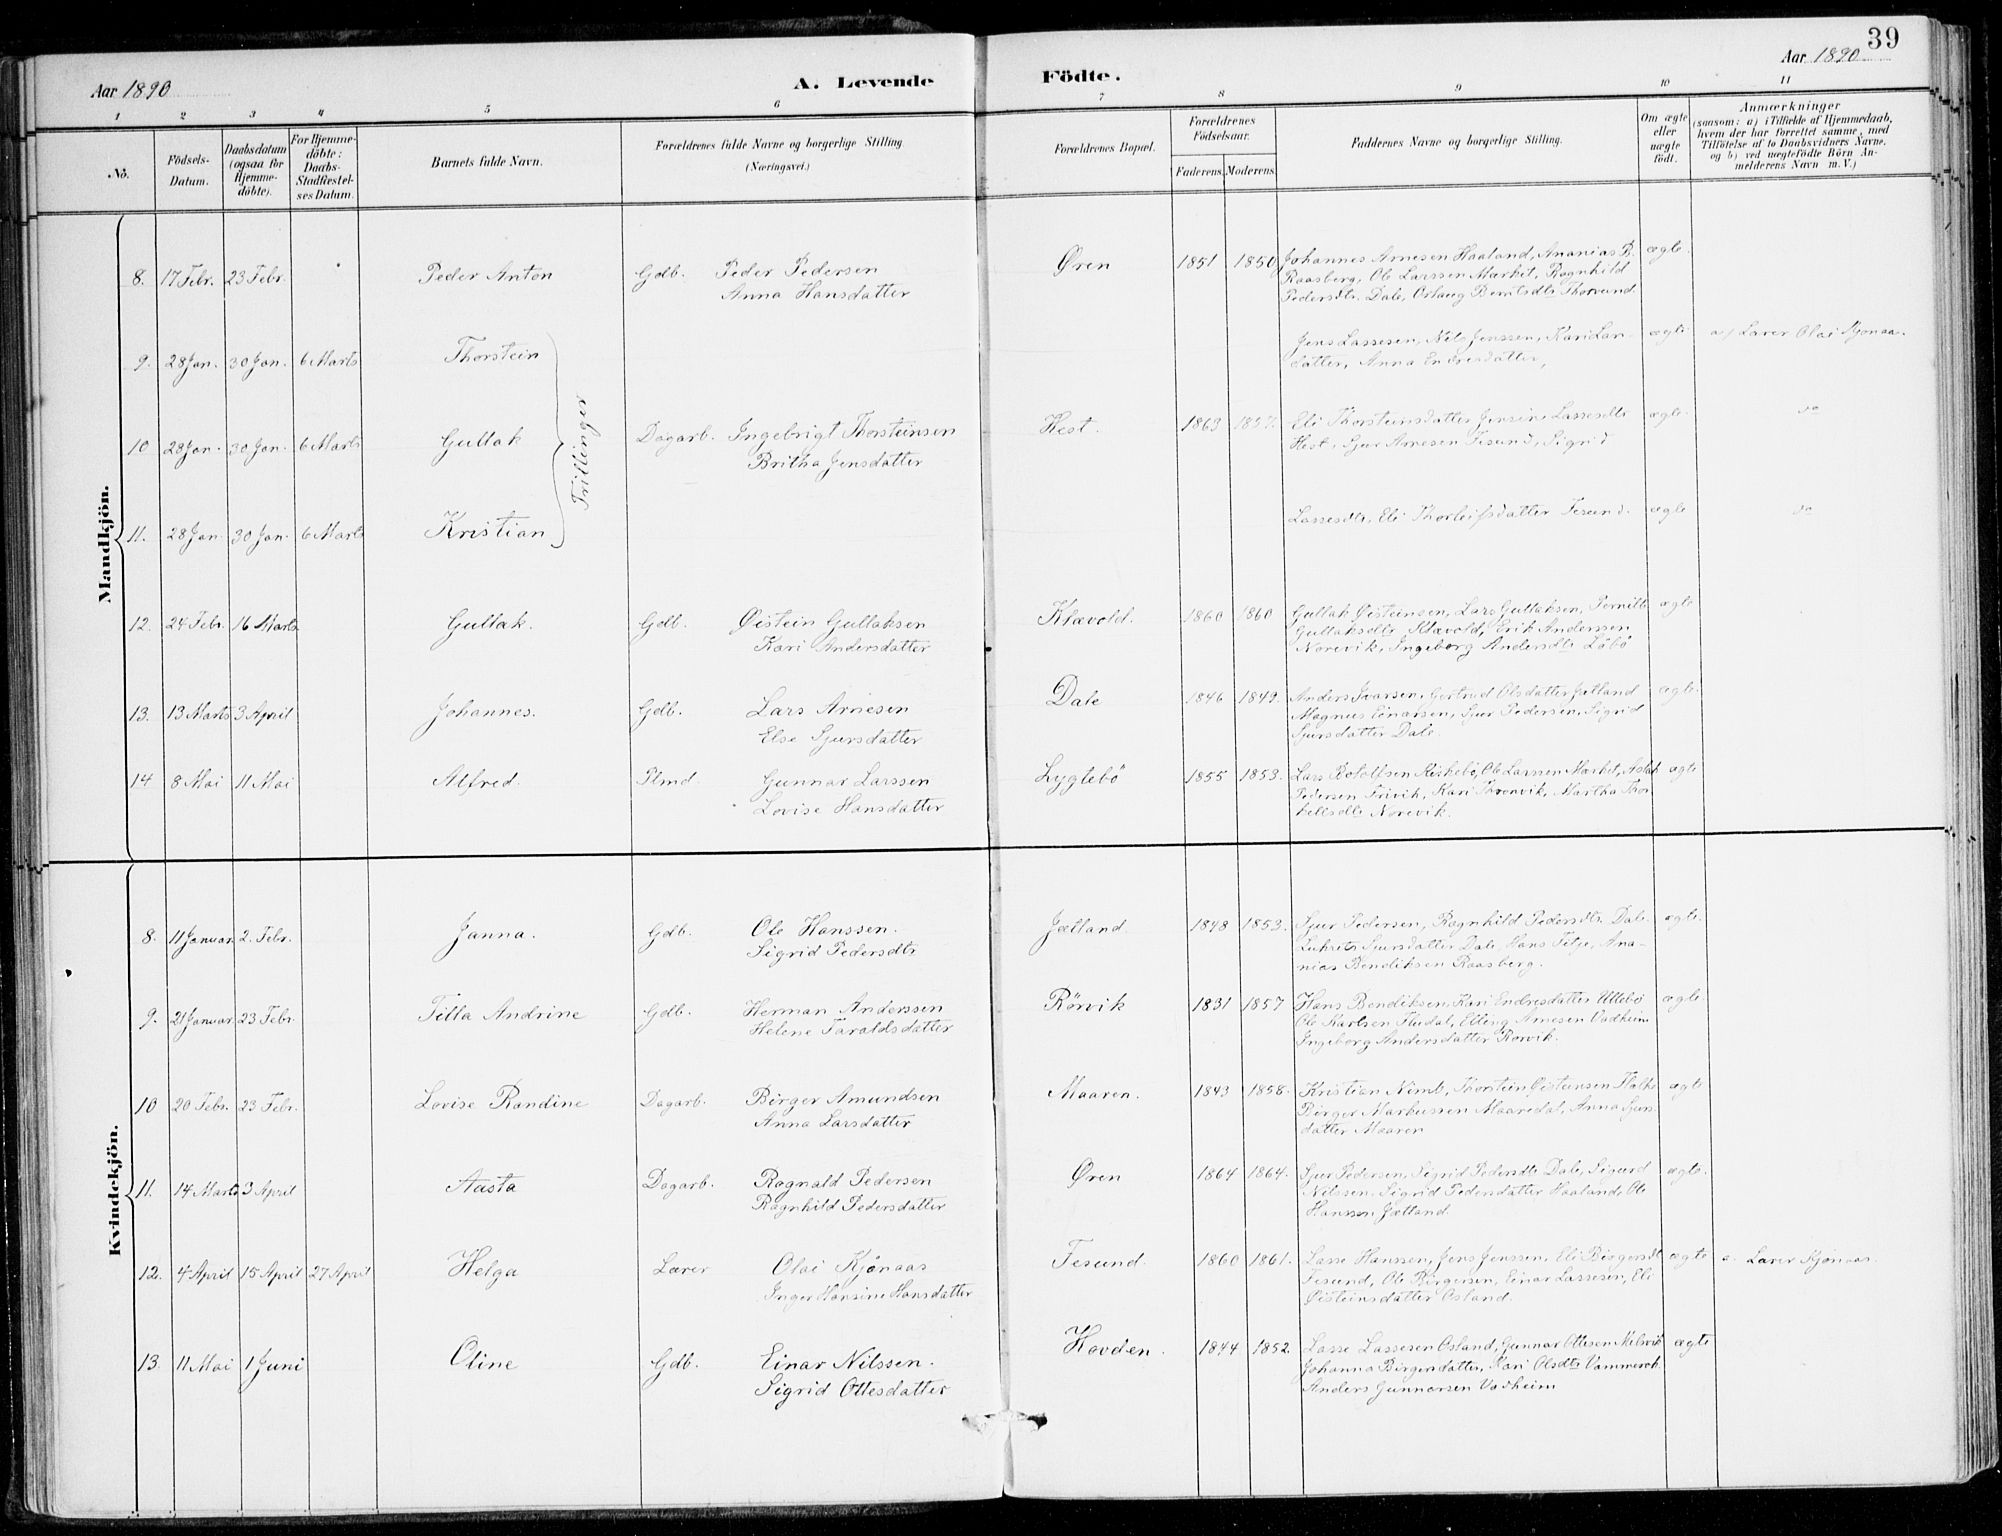 39
Aar 1890
A. Levende Födte.
Aar 1890
1 2 3 4 5 6 7 8 9 10 11
No.
Födsels-Datum.
Daabsdatum (ogsaa for Hjemme-döbte).
For Hjemme-döbte: Daabs-Stadfæstel-ses Datum.
Barnets fulde Navn.
Forældrenes fulde Navne og borgerlige Stilling (Næringsvei.)
Forældrenes Bopæl.
Forældrenes Födselsaar.
Faderens. Moderens.
Faddernes Navne og borgerlige Stilling.
Om ægte eller uægte födt.
Anmærkninger
(saasom: a) i Tilfælde af Hjemmedaab,
hvem der har forrettet samme, med
Tilföielse af to Daabsvidners Navne.
og b) ved uægtefödte Börn An-
melderens Navn m. V.)
Mandkjön.
8. 17 Febr. 23 Febr. Peder Anton Gdb. Peder Pedersen Øren 1851 1850 Johannes Arnesen Haaland, Ananias B. ægte
Anna Hansdatter Raasberg, Ole Larssen Mærket, Ragnhild
Pedersdtr. Dale, Oslaug Berntsdtr Thorvund.
9. 28 Jan. 30 Jan. 6 Marts Thorstein Jens Lassesen, Nils Jenssen, Kari Lar- ægte a) Lærer Olai Kjønaas.
datter, Anna Endresdatter,
Trillinger
10 28 Jan. 30 Jan. 6 Marts Gullak Dagarb. Ingebrigt Thorsteinsen Hest. 1863 1857. Eli Thorsteinsdatter Jensine Lassesdtr ægte do
Britha Jensdatter Hest, Sjur Arnesen Tesund, Sigrid
11. 28 Jan. 30 Jan. 6 Marts Kristian Lassesdtr, Eli Thorleifsdatter Tesund. ægte do
12. 24 Febr. 16 Marts Gullak. Gdb. Øistein Gullaksen Klævold. 1860 1860 Gullak Øisteinsen, Lars Gullaksen, Pernille ægte
Kari Andersdatter Gullaksdtr Klævold, Erik Anderssen
Norevik, Ingeborg Andersdtr Løbø
13. 13 Marts 3 April Johannes. Gdb. Lars Arnesen Dale 1846 1849. Anders Ivarsen, Gertrud Olsdatter Jætland ægte.
Else Sjursdatter Magnus Einarsen, Sjur Pedersen, Sigrid
Sjursdatter Dale.
14 8 Mai 11 Mai Alfred. Plmd. Gunnar Larssen Lygtebø 1855 1853. Lars Rotolfsen Riskebø, Ole Larssen Mærket, Aslak ægte
Lovise Hansdatter Pedersen Frivik, Kari Thronvik, Martha Thor
kellsdtr Norevik.
Kvindekjön.
8. 11 Januar. 2. Febr. Janna. Gdb. Ole Hanssen. Jætland 1848 1853. Sjur Pedersen, Ragnhild Pedersdtr Dale. ægte.
Sigrid Pedersdtr Sjursdatter Dale, Hans Tilje, Ana-
nias Bendiksen Raasberg.
9. 21 Januar 23 Febr. Tilla Andrine Gdb. Herman Anderssen Rörvik 1831 1857 Hans Bendiksen, Kari Endresdatter Ullebø ægte.
Helene Taraldsdatter Ole Karlsen Flædal, Elling Arnesen Vadheim
Ingeborg Andersdatter Rörvik.
10 20 Febr. 23 Febr. Lovise Randine Dagarb. Birger Amundsen Maaren. 1843 1858. Kristian Nimb, Thorstein Øisteinsen ægte
Anna Larsdatter Birger Markussen Maaredal, Anna Sjurs
datter Maaren
11. 14 Marts 3 April Aasta Dagarb. Ragnald Pedersen Øren 1864 1864. Sjur Pedersen, Sigrid Pedersdtr Dale, Sigurd ægte.
Ragnhild Pedersdatter Nilssen, Sigrid Pedersdatter Haaland, Ole
Hanssen Jætland
12. 4 April 15 April 27 April Helga Lærer Olai Kjønaas Tesund. 1860 1861. Lasse Hanssen, Jens Jenssen, Eli Birgersdtr ægte a. Lærer Kjønaas.
Inger Hansine Hansdatter Tesund, Ole Birgersen, Einar Lassesen, Eli
Øisteinsdatter Osland.
13. 11 Mai 1 Juni Oline Gdb. Einar Nilssen. Hovden. 1844 1852 Lasse Lassesen Osland, Gunnar Ottesen Nelsvik ægte
Sigrid Ottesdatter Johanna Birgersdatter, Kari Olsdtr
Anders Gunnarsen Vadheim